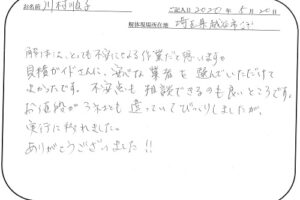 お名前 川村順子 ご記入日 2020年5月20日
解体現場所在地 埼玉県越谷市
解体は、とっても不安になる作業だと思いますが
見積ガイドさんに、適切な業者を選んでいただけて
よかったです。不安点も相談できるのも良いところです。
お値段が3社とも違っていてびっくりしましたが、
実行に移れました。
ありがとうございました!!